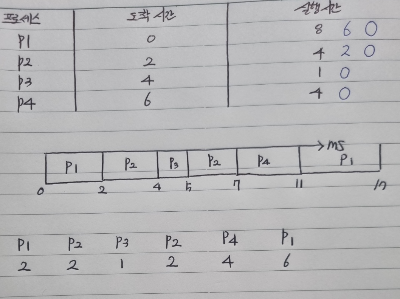 프로세스 도착 시간 실행시간
P1 0 8 6 0
P2 2 4 2 0
P3 4 1 0
P4 6 4 0
ms
P1 P2 P3 P2 P4 P1
0 2 4 5 7 11 17
P1 P2 P3 P2 P4 P1
2 2 1 2 4 6